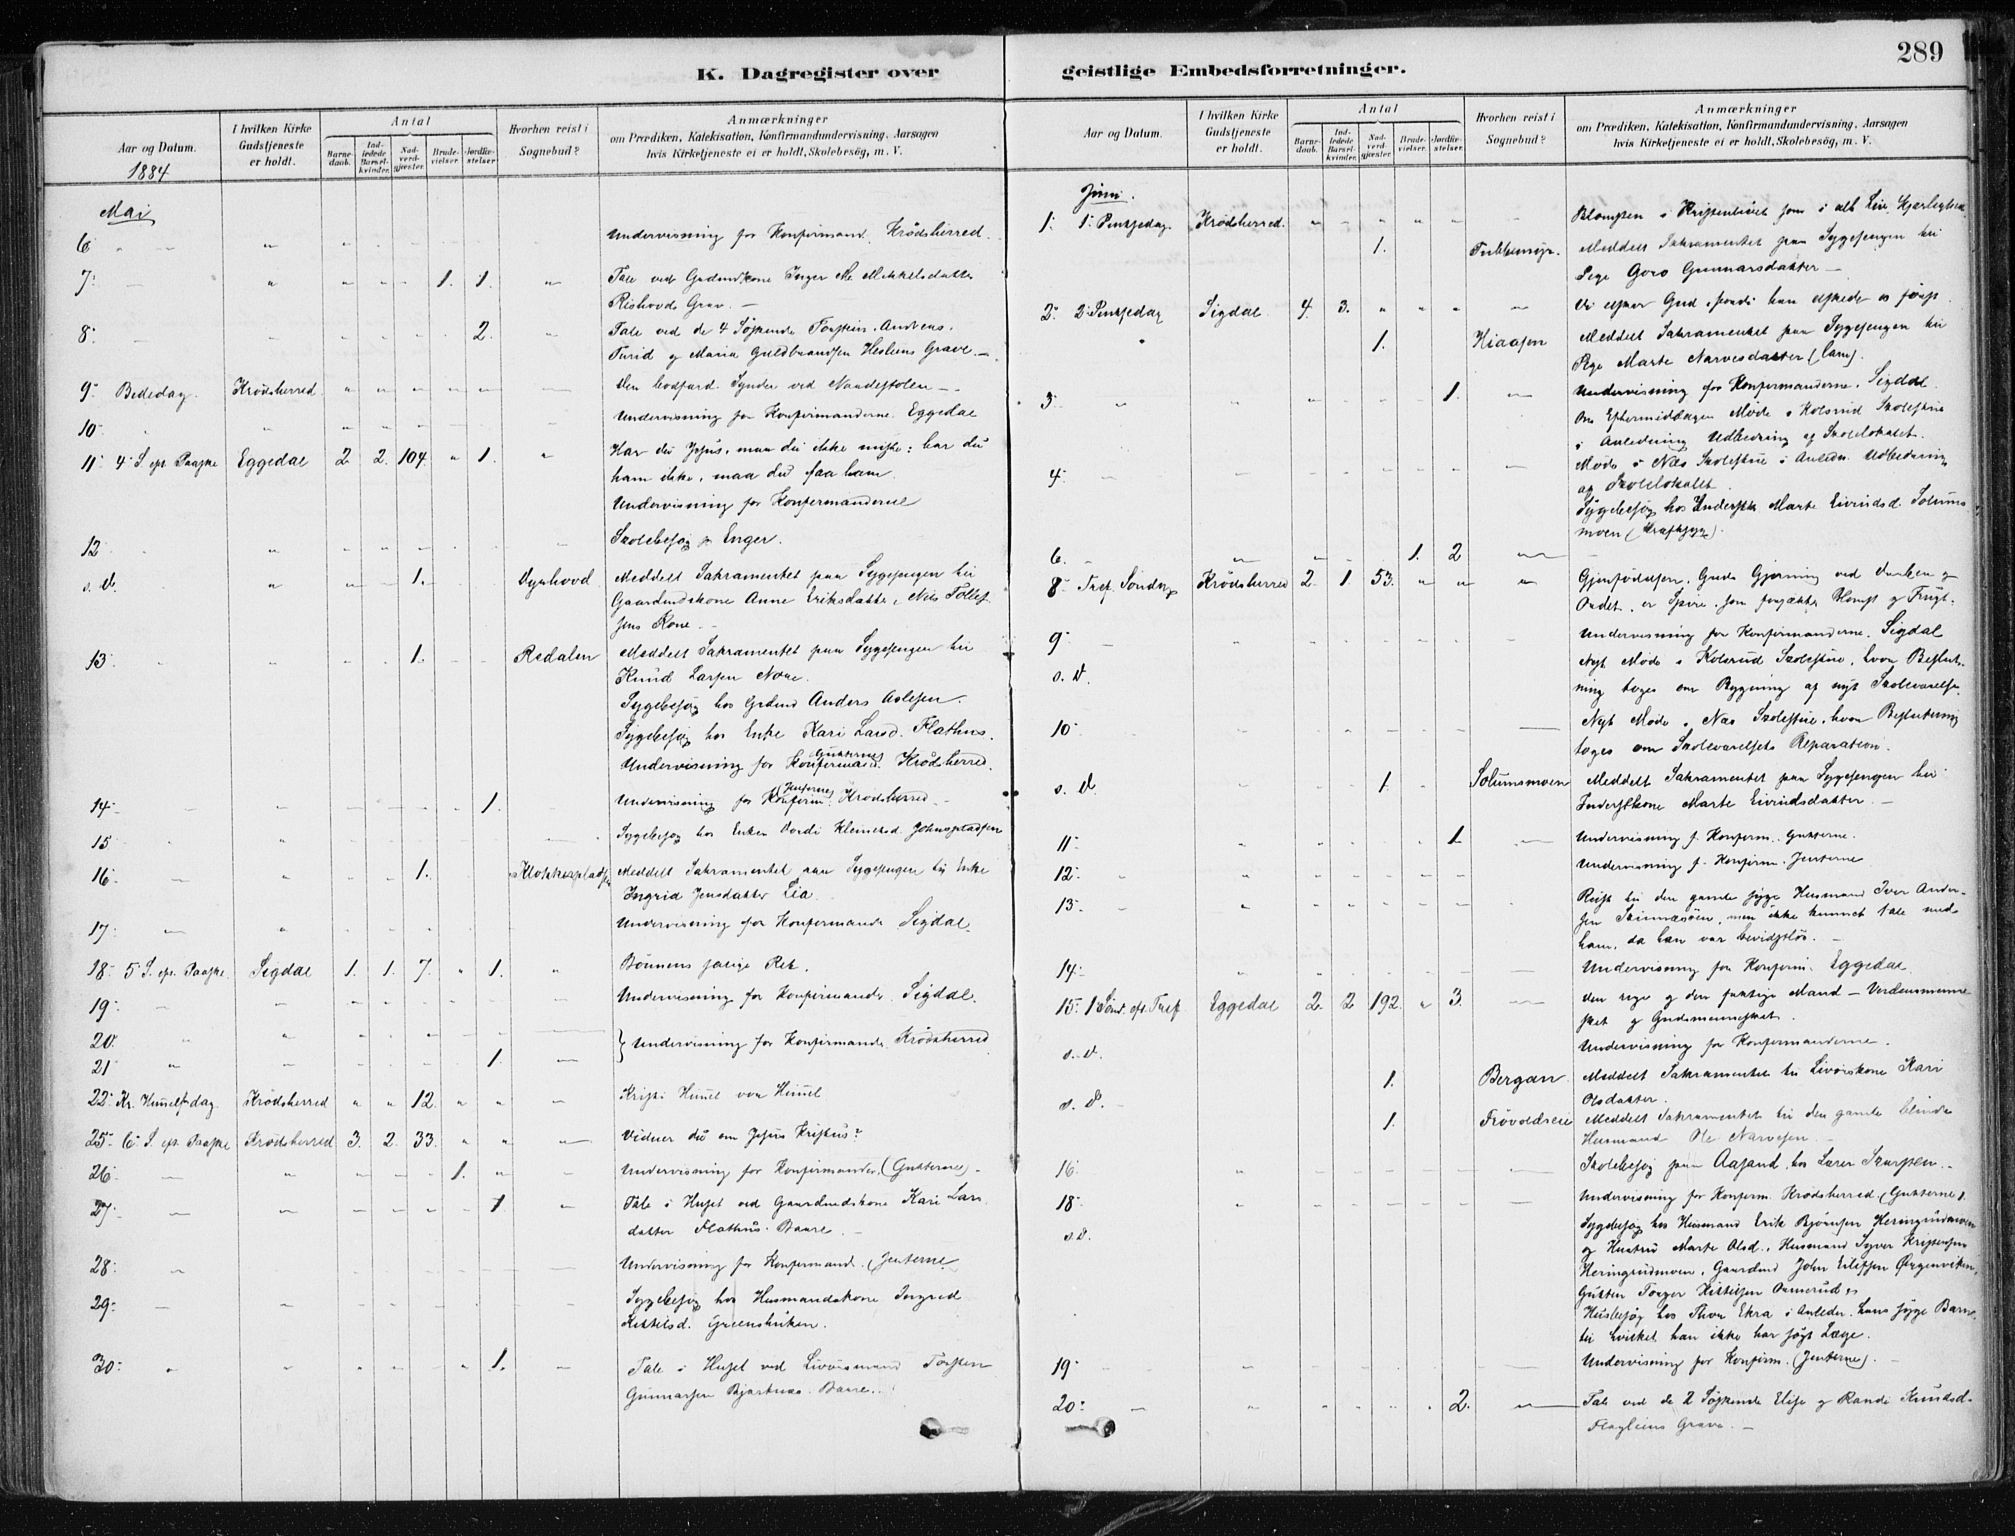 289
K. Dagregister over geistlige Embedsforretninger.
Aar og Datum.
I hvilken Kirke Gudstjeneste er holdt.
Antal
Barnedaab.
Indledede Barselkvinder.
Nadverdgjester.
Brudevielser.
Jordfæstelser
Hvorhen reist i Sognebud?
Anmærkninger
om Prædiken, Katekisation, Konfirmandundervisning, Aarsagen
hvis Kirketjeneste ei er holdt, Skolebesøg, m. V.
1884
Mai
6 Undervisning for Konfirmand. Krødsherred.
7 1. 1. Tale ved Gaardmdskone Inger Mikkelsdatter
Rishovds Grav. —
8 2. Tale ved de 4 Søskende Torstein, Andreas,
Turid og Maria Guldbrandsen Grave. —
9 Bededag. Krødsherred Den bodfærd. Synder ved Naadestolen —
10 Undervisning for Konfirmanderne. Eggedal
11 4 S. ef. Paaske Eggedal 2 2. 104. 1. Har du Jesus, maa du ikke miste: har du
ham ikke, maa du faa ham.
Undervisning for Konfirmanderne
12 Skolebesøg p. Enger.
s. D. 1. Meddelt Sakramentet paa Sygesengen til
Gaardmdskone Anne Eriksdatter, Nils Tollef
sens Kone. —
13 1. Redalen Meddelt Sakramentet paa Sygesengen til
Knud Larsen
Sygebesøg hos Grdmd Anders Aslesen.
Sygebesøg hos Enke Kari Larsd. Flathus.
Undervisning for Konfirmand. (Gutterne) Krødsherred.
14 1. Undervisning for Konfirm. (Jenterne) Krødsherred.
15 Sygebesøg hos Enken
16 1. Klokkerpladsen Meddelt Sakramentet paa Sygesengen til Enke
Ingrid Jensdatter Lia
17 Undervisning for Konfirmande Sigdal
18 5 S. ef. Paaske Sigdal 1. 1. 7. 1. Bønnens Ret.
19 Undervisning for Konfirmande. Sigdal.
20
21 1. Undervisning for Konfirmande. Krødsherred
22 Kr. Himmelf. dag Krødsherred 12. Kristi Himmel vor Himmel
25 6 S. ef. Paaske Krødsherred 3. 2. 33. Vidner du om Jesus Kristus?
26 1. Undervisning for Konfirmander. (Gutterne) —
27 1 Tale i Huset ved Gaardmdskone Kari Lars
datter Flathus Baare. —
28 Undervisning for Konfirmand. (Jenterne)
29 Sygebesøg hos Husmandskone Ingrid
Kittilsd.
30 1. Tale i Huset ved Livørsmand Torsten
Gunnarsen Baare.
Aar og Datum.
I hvilken Kirke Gudstjeneste er holdt.
Antal
Barnedaab.
Indledede Barselkvinder.
Nadverdgjester.
Brudevielser.
Jordfæstelser.
Hvorhen reist i Sognebud?
Anmærkninger
om Prædiken, Katekisation, Konfirmandundervisning, Aarsagen
hvis Kirketjeneste ei er holdt, Skolebesøg, m. V.
Juni.
1 1. Pinsedag. Krødsherred. Blomsten i Kristenlivet som i alt Liv, Kjærlighed.
1. Meddelt Sakramentet paa Sygesengen til
Pige Goro Gunnarsdatter —
2 2. Pinsedag Sigdal 4. 3. Vi elsker Gud, fordi han elskede os først.
1. Kiaasen Meddelt Sakramentet paa Sygesengen til
Pige Marte Narvesdatter (lam).
3 1. Undervisning for Konfirmanderne. Sigdal
Om Eftermiddagen Møde i Kolsrud Skolestue
i Anledning Udbedring af Skolelokalet.
4 Møde i Næs Skolestue i Anledn. Udbedring
af Skolelokalet.
Sygebesøg hos Marte Eivindsd. Solums
moen
6 1. 2
8 Tref. Søndag Krødsherred 2. 1. 53. Gjenfødelsen, Guds Gjerning ved Daaben og
Ordet, er Spire, som forsætter Blomst og Frugt.
9 Undervisning for Konfirmanderne. Sigdal
s. D. Nyt Møde i Kolsrud Skolestue, hvor Beslut-
ning toges om Bygning af nyt Skoleværelse.
10 Nyt Møde i Næs Skolestue, hvor Beslutning
toges om Skoleværelsets Reparation.
s. D. 1. Solumsmoen Meddelt Sakramentet paa Sygesengen til
Marte Eivindsdatter. —
11 1. Undervisning f. Konfirm. Gutterne.
12 Undervisning f. Konfirm. Jenterne
13 Reist til den gamle syge Husmand Iver Ander-
sen men ikke kunnet tale med
ham, da han var bevidstløs. —
14 Undervisning for Konfirm. Eggedal
15 1 Sønd. eft. Tref. Eggedal 2. 2 192. 3. Den rige og den fattige Mand — Verdensmenne
sket og Gudsmennesket.
s. D. Undervisning for Konfirmanderne.
1. Bergan Meddelt Sakramentet til Livørskone Kari
Olsdatter.
s. D. 1. Frøvoldseie Meddelt Sakramentet til den gamle blinde
Husmand Ole Narvesen —
16 Skolebesøg paa Aasand, hos Lærer
18 Undervisning for Konfirm. Krødsherred. (Gutterne).
s. D. Sygebesøg hos Husmand Erik Bjørnsen Heringrudmoen
og Hustru Marte Olsd., Husmand Syver Kristensen
Heringrudmoen, Gaardmd John Eilifsen Ørgenviken,
Gutten Torger Kittilsen
Husbesøg hos Thor Ekra i Anledn. hans syge Barn,
til hvilket han ikke har søgt Læge.
19 Undervisning for Konfirm. (Jenterne). —
20 2. Tale ved de 2 Søskende Elise og Randi Knudsd.
Grave. —